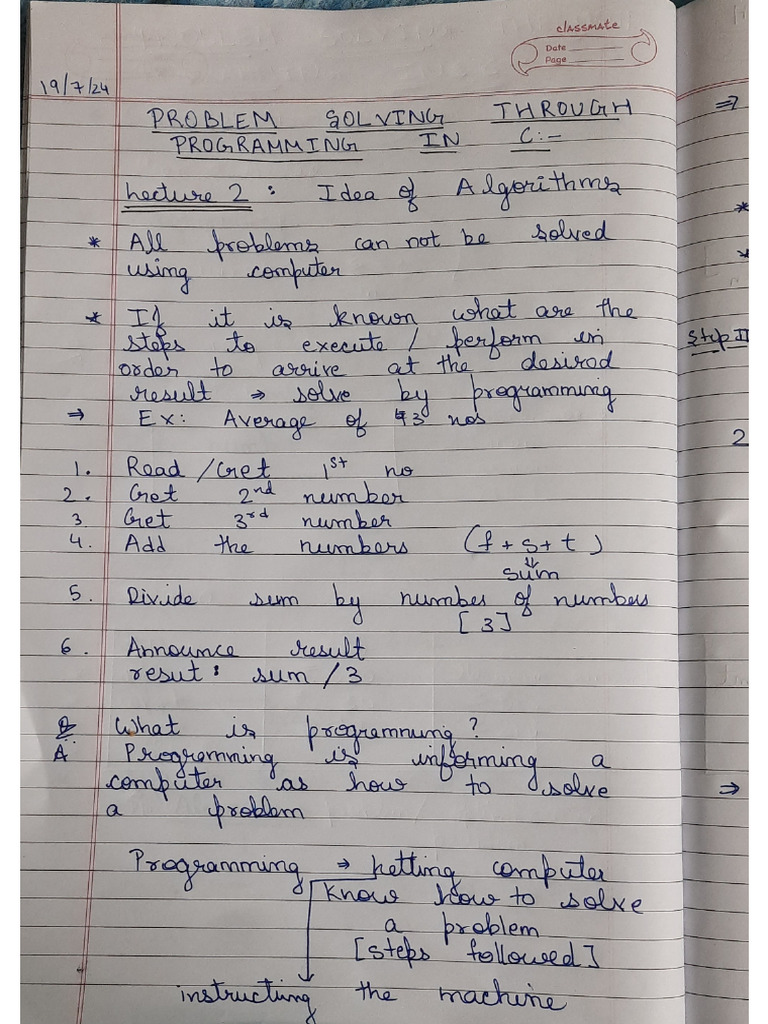 classmate
Date
Page
19/7/24
PROBLEM SOLVING THROUGH
PROGRAMMING IN C:-
Lecture 2 : Idea of Algorithms
* All problems can not be solved
using computer
* If it is known what are the
steps to execute / perform in
order to arrive at the desired
result → solve by programming
⇒ Ex: Average of 3 nos
1. Read /Get 1st no
2. Get 2nd number
3. Get 3rd number
4. Add the numbers (f + s + t)
⇓
sum
5. Divide sum by number of numbers
[3]
6. Announce result
resut : sum / 3
Q What is programming?
A. Programming is informing a
computer as how to solve
a problem
Programming → Letting computer
know how to solve
a problem
[steps followed]
instructing the machine
⇒
*
*
Step II
2
⇒